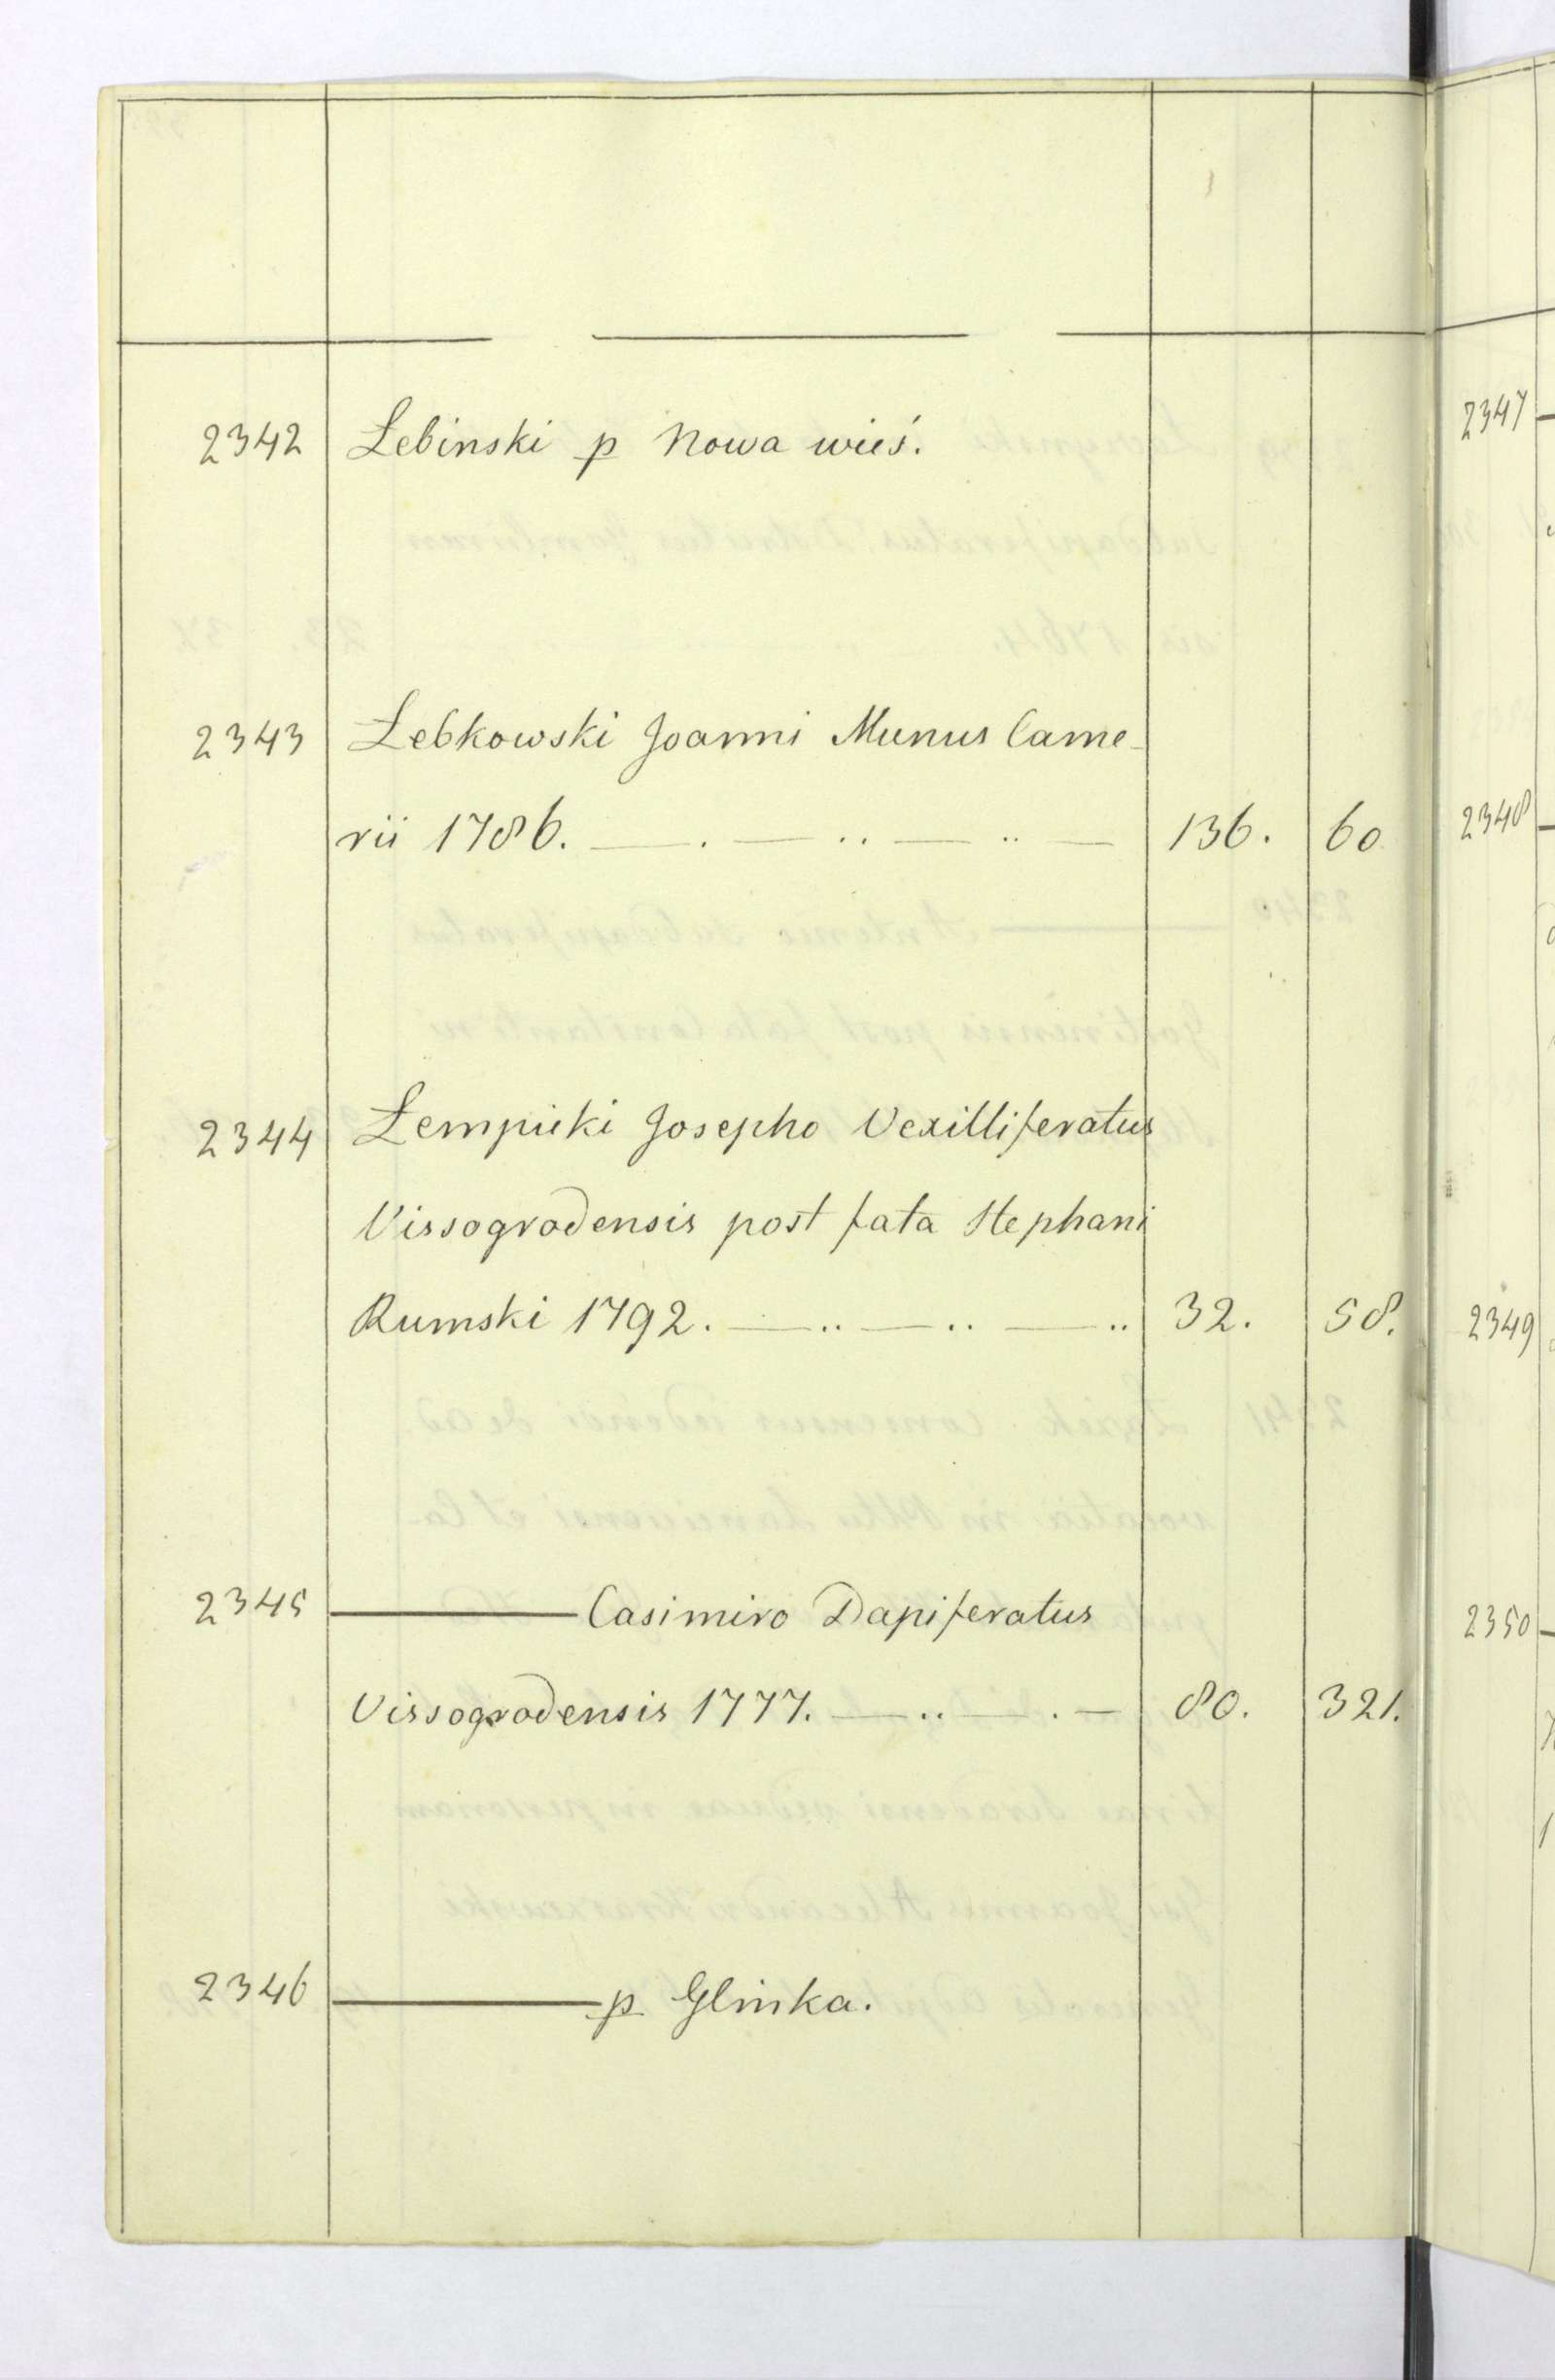 2342 Łebinski p Nowa wieś.
2343 Łebkowski Joanni Munus Came-
rii 1786. —— . —— .. —— .. —— 136. 60
2344 Łempicki Josepho Vexilliferatus
Vissogrodensis post fata Stephani
Rumski 1792. —— .. —— .. —— .. 32. 58.
2345 ——— Casimiro Dapiferatus
Vissogrodensis 1777. —— .. —— . — 80. 321.
2346 ——— p Glinka.
2347
2348
2349
2350